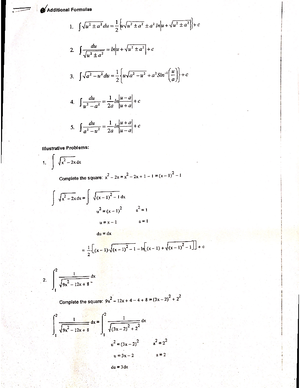 Additional Formulas
1. ∫√(u² ± a²) du = 1/2 [u√(u² ± a²) ± a² ln|u + √(u² ± a²)|] + c
2. ∫ du/√(u² ± a²) = ln|u + √(u² ± a²)| + c
3. ∫√(a² − u²) du = 1/2 [u√(a² − u²) + a² Sin⁻¹(u/a)] + c
4. ∫ du/(u² − a²) = 1/2a ln|(u − a)/(u + a)| + c
5. ∫ du/(a² − u²) = 1/2a ln|(u + a)/(u − a)| + c
Illustrative Problems:
1. ∫ √(x² − 2x) dx
Complete the square: x² − 2x = x² − 2x + 1 − 1 = (x − 1)² − 1
∫ √(x² − 2x) dx = ∫ √((x − 1)² − 1) dx
u² = (x − 1)² a² = 1
u = x − 1 a = 1
du = dx
= 1/2 [(x − 1)√((x − 1)² − 1) − ln[(x − 1) + √((x − 1)² − 1)]] + c
2. ∫₁² 1/√(9x² − 12x + 8) dx
Complete the square: 9x² − 12x + 4 − 4 + 8 = (3x − 2)² + 2²
∫₁² 1/√(9x² − 12x + 8) dx = ∫₁² 1/√((3x − 2)² + 2²) dx
u² = (3x − 2)² a² = 2²
u = 3x − 2 a = 2
du = 3dx